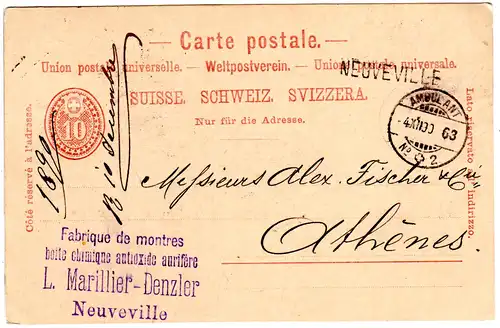 Carte postale.
Union postale universelle. – Weltpostverein. – Unione postale universale.
NEUVEVILLE
SUISSE. SCHWEIZ. SVIZZERA.
Nur für die Adresse.
10
Côté réservé à l'adresse.
Lato riservato all'indirizzo.
AMBULANT
63
No 2
1890
decembre
Messieurs Alex. Fischer & Cie
Athènes
Fabrique de montres
boite chimique antioxide aurifère
L. Marillier-Denzler
Neuveville